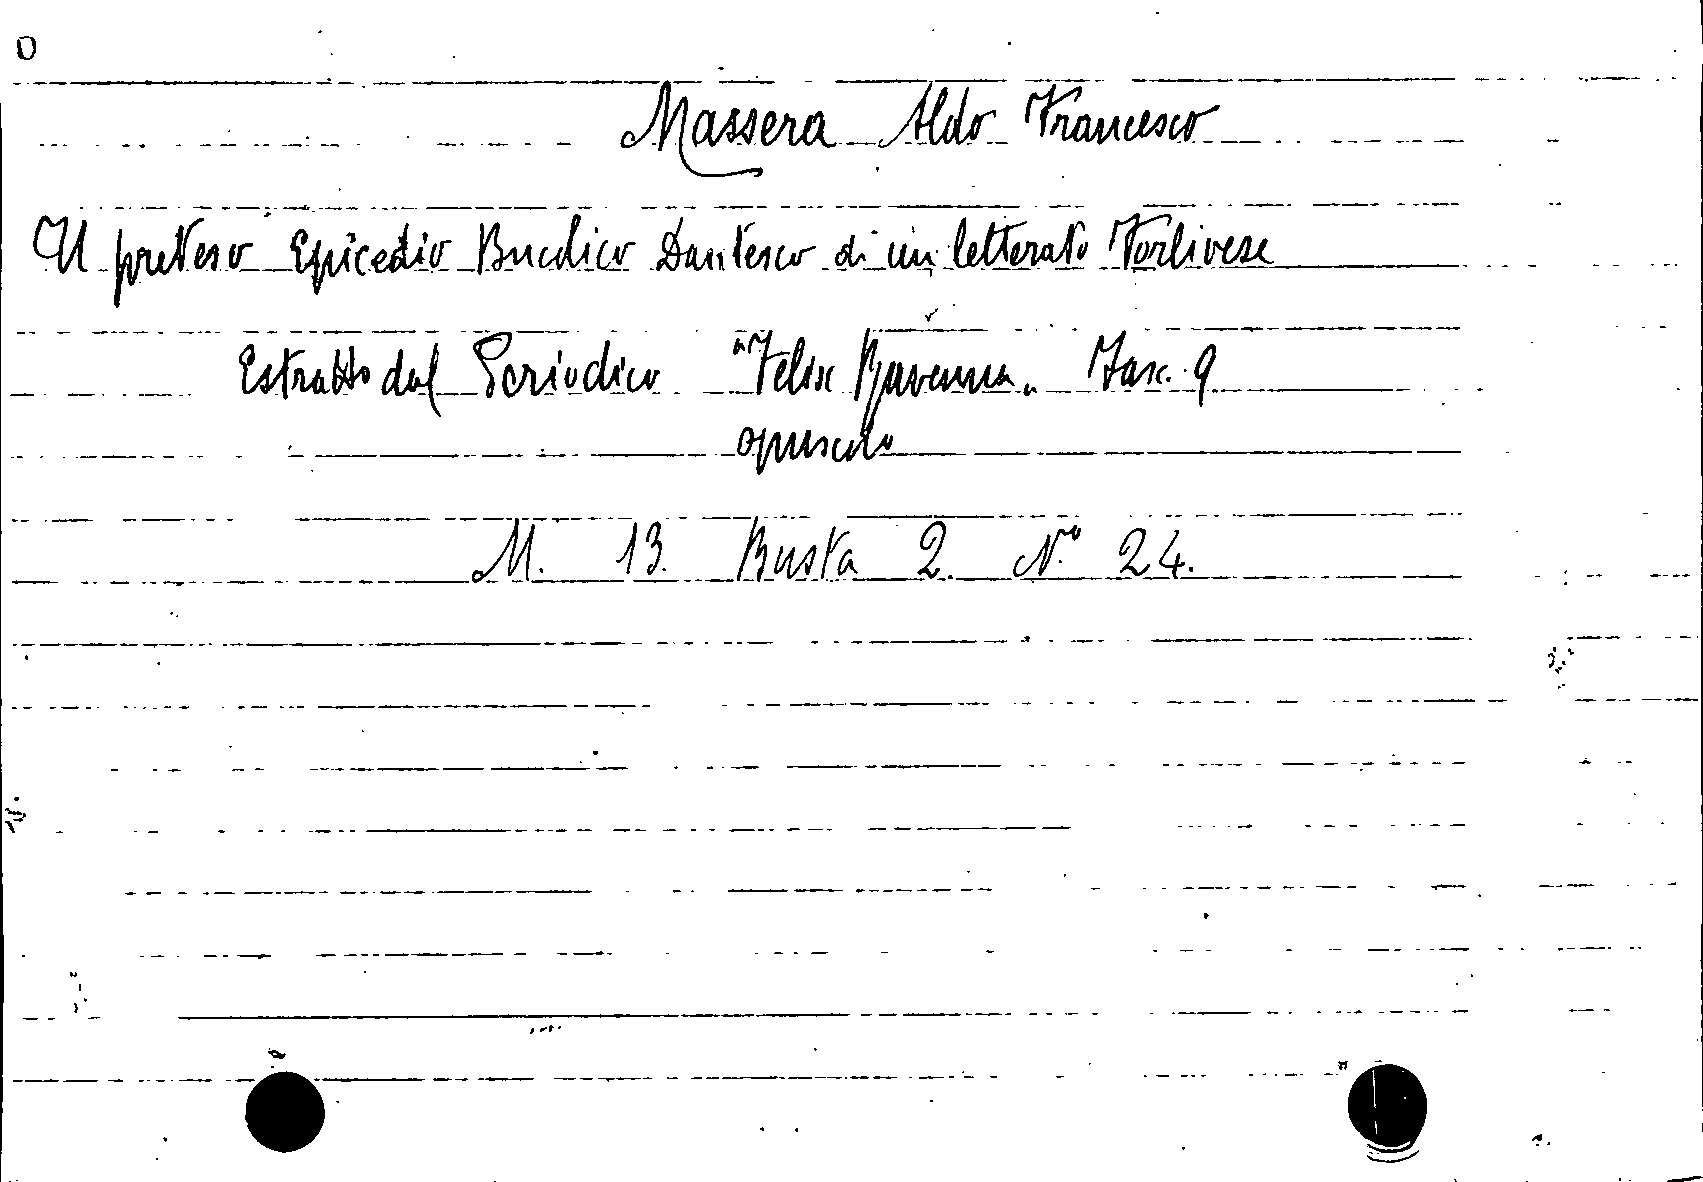 O
Massera Aldo Francesco
Il preteso Epicedio Bucolico Dantesco di un letterato Forlivese
Estratto dal Periodico "Felix Ravenna" Fasc. 9
opuscolo
M. 13. Busta 2. N.º 24.